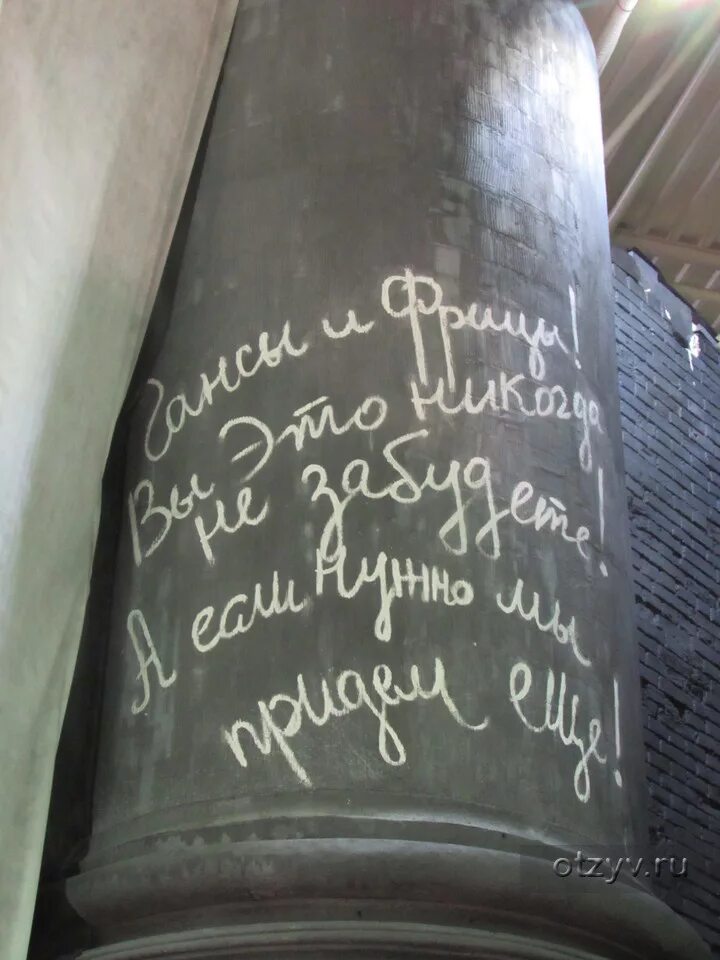 Гансы и Фрицы!
Вы это никогда
не забудете!
А если нужно мы
придем ещё!
otzyv.ru